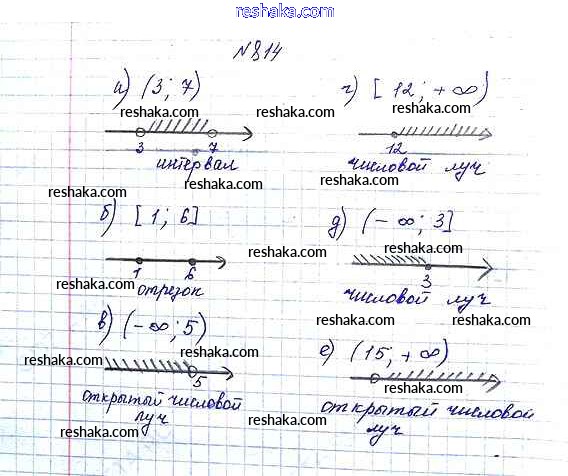 reshaka.com
№ 814
а) (3; 7)
reshaka.com
3 7
интервал
reshaka.com
б) [1; 6]
reshaka.com
1 6
отрезок
reshaka.com
в) (-∞; 5)
reshaka.com
5
открытый числовой
луч
reshaka.com
reshaka.com
г) [12; +∞)
reshaka.com
12
числовой луч
reshaka.com
д) (-∞; 3]
reshaka.com
3
числовой луч
reshaka.com
е) (15; +∞)
reshaka.com
открытый числовой
луч
reshaka.com
reshaka.com